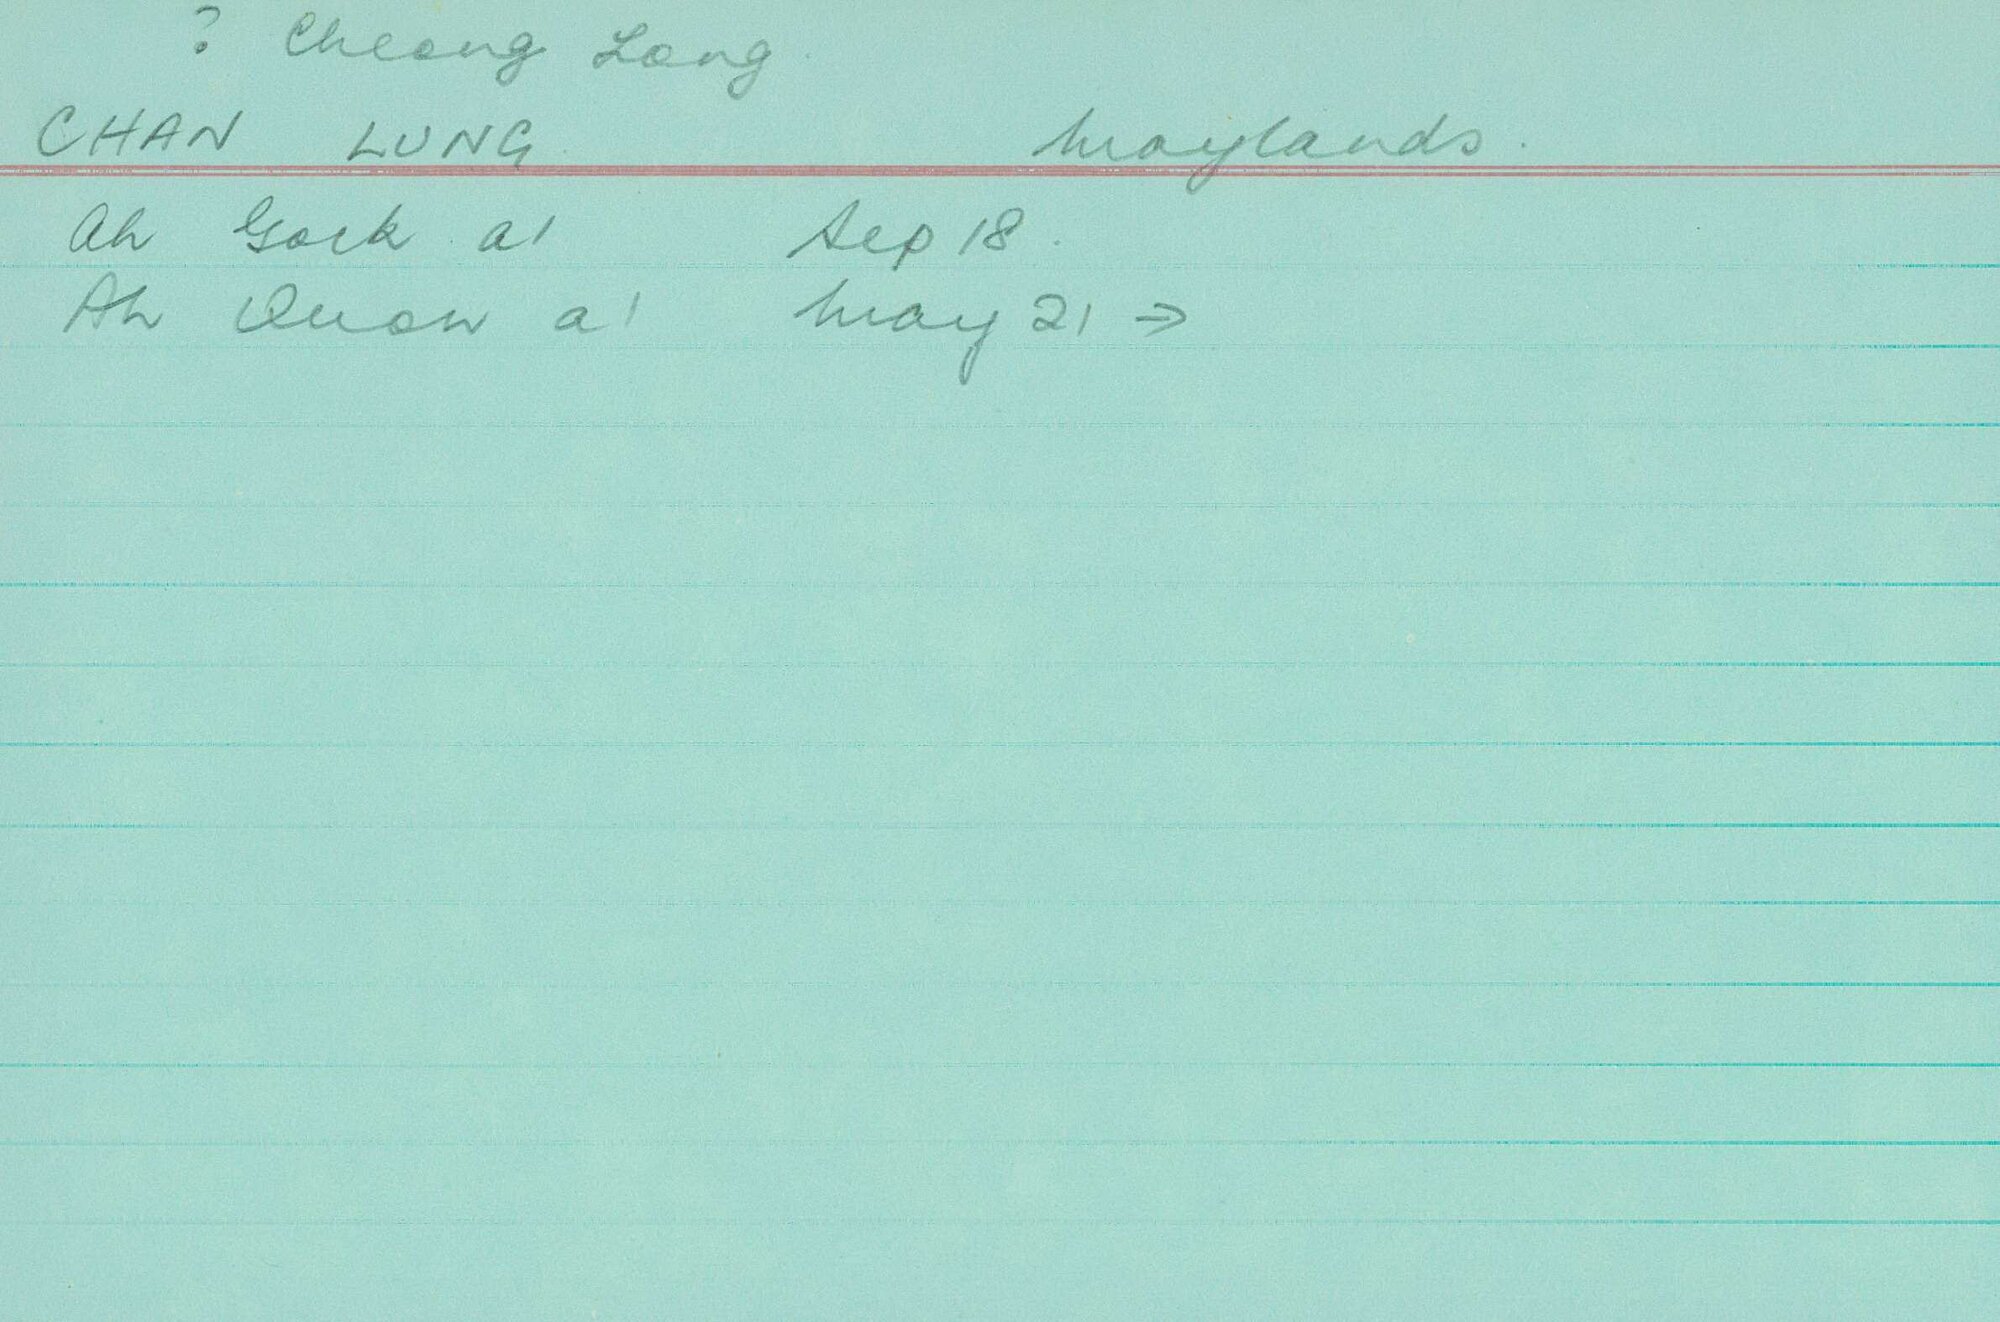 ? Cheong Long
CHAN LUNG Maylands.
Ah Gock a1 Sep 18.
Ah Quon a1 May 21 →